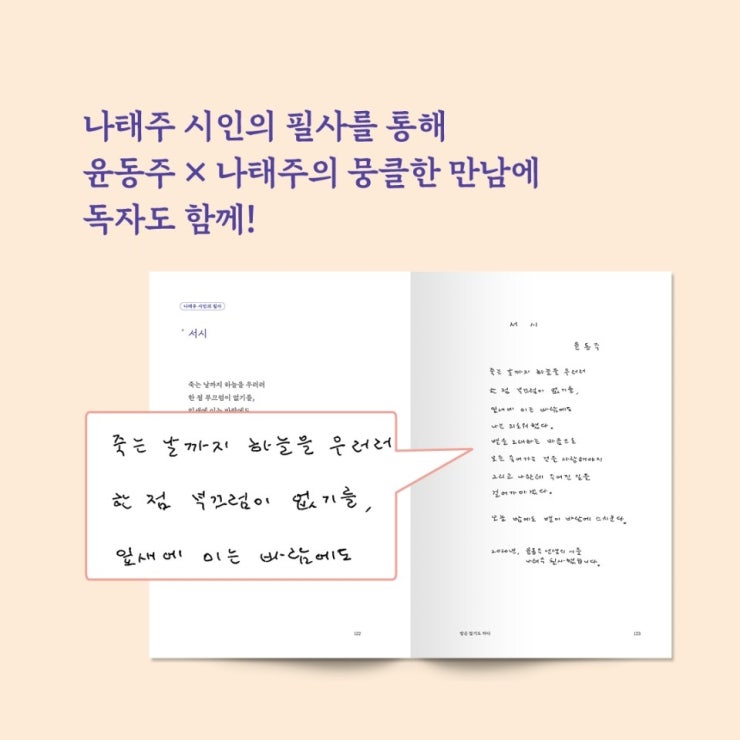 나태주 시인의 필사를 통해
윤동주 × 나태주의 뭉클한 만남에
독자도 함께!
나태주 시인의 필사
서시
죽는 날까지 하늘을 우러러
한 점 부끄럼이 없기를,
잎새에 이는 바람에도
죽는 날까지 하늘을 우러러
한 점 부끄럼이 없기를,
잎새에 이는 바람에도
122
서 시
윤동주
죽는 날까지 하늘을 우러러
한 점 부끄럼이 없기를,
잎새에 이는 바람에도
나는 괴로워했다.
별을 노래하는 마음으로
모든 죽어가는 것을 사랑해야지
그리고 나한테 주어진 길을
걸어가야겠다.
오늘 밤에도 별이 바람에 스치운다.
윤동주 선생의 시를
나태주 필사했습니다.
123